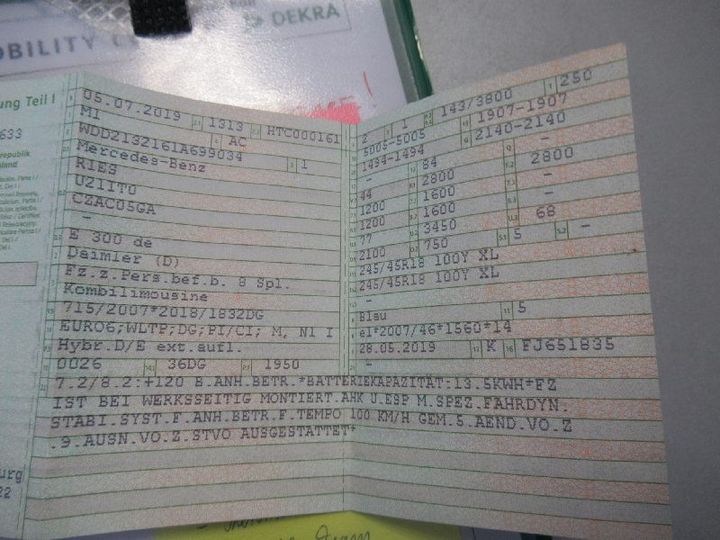 DEKRA
OBILITY
ung Teil I
633
05.07.2019 1313 HTC000161
M1 AC
WDD2132161A699034
Mercedes-Benz 1
RIES
U21IT0
CZAC05GA
-
E 300 de
Daimler (D)
Fz.z.Pers.bef.b. 8 Spl.
Kombilimousine
715/2007*2018/1832DG
EURO6;WLTP;DG;PI/CI; M, N1 I
Hybr.D/E ext.aufl.
0026 36DG 1950
2 1 143/3800 250
5005-5005 1907-1907
1494-1494 2140-2140
- 84 -
44 2800 2800
1200 1600 -
1200 1600 -
77 3450 68
2100 750 5 -
245/45R18 100Y XL
245/45R18 100Y XL
-
Blau 5
e1*2007/46*1560*14
28.05.2019 K FJ651835
-
7.2/8.2:+120 B.ANH.BETR.*BATTERIEKAPAZITÄT:13.5KWH*FZ
IST BEI WERKSSEITIG MONTIERT.AHK U.ESP M.SPEZ.FAHRDYN.
STABI.SYST.F.ANH.BETR.F.TEMPO 100 KM/H GEM.5.AEND.VO.Z
.9.AUSN.VO.Z.STVO AUSGESTATTET*
urg
22